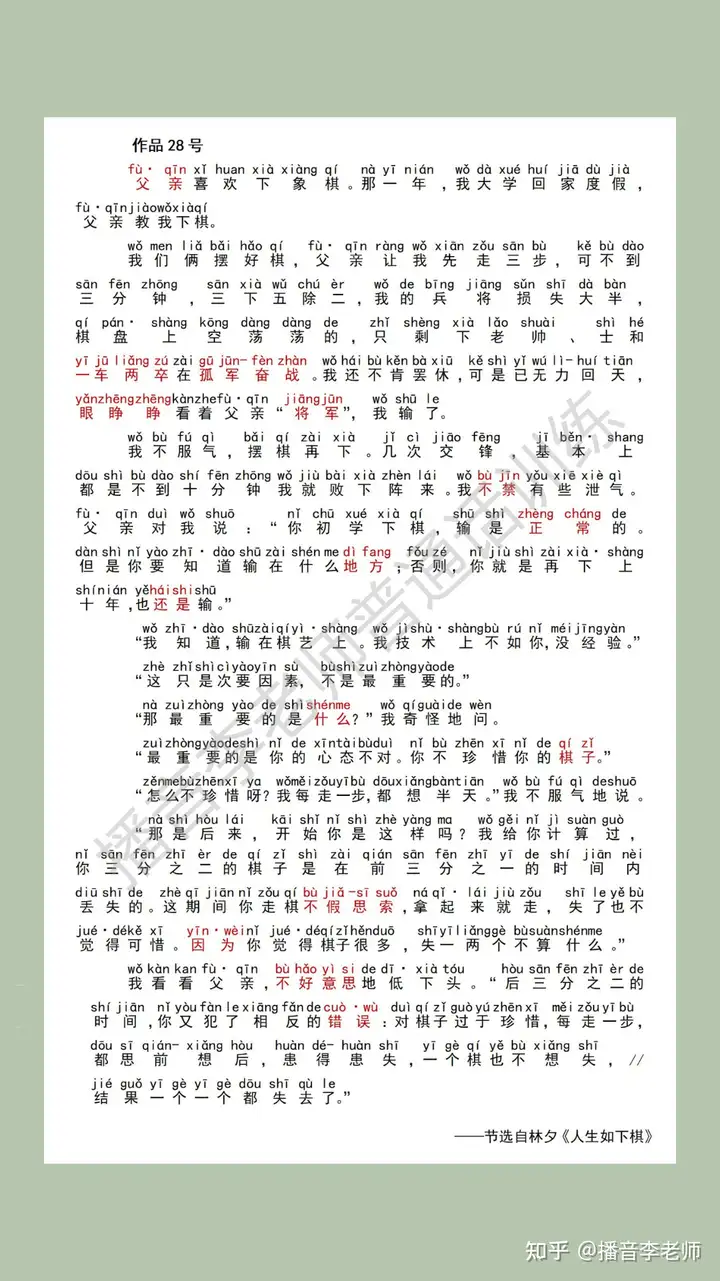 作品 28 号
fù· qīn xǐ huan xià xiàng qí nà yī nián wǒ dà xué huí jiā dù jià
父亲喜欢下象棋。那一年，我大学回家度假，
fù·qīnjiàowǒxiàqí
父亲教我下棋。
wǒ men liǎ bǎi hǎo qí fù· qīn ràng wǒ xiān zǒu sān bù kě bù dào
我们俩摆好棋，父亲让我先走三步，可不到
sān fēn zhōng sān xià wǔ chú èr wǒ de bīng jiāng sǔn shī dà bàn
三分钟，三下五除二，我的兵将损失大半，
qí pán· shàng kōng dàng dàng de zhǐ shèng xià lǎo shuài shì hé
棋盘上空荡荡的，只剩下老帅、士和
yī jū liǎng zú zài gū jūn-fèn zhàn wǒ hái bù kěn bà xiū kě shì yǐ wú lì-huí tiān
一车两卒在孤军奋战。我还不肯罢休，可是已无力回天，
yǎnzhēngzhēngkànzhefù·qīn jiāngjūn wǒ shū le
眼睁睁看着父亲“将军”，我输了。
wǒ bù fú qì bǎi qí zài xià jǐ cì jiāo fēng jī běn· shang
我不服气，摆棋再下。几次交锋，基本上
dōu shì bù dào shí fēn zhōng wǒ jiù bài xià zhèn lái wǒ bù jīn yǒu xiē xiè qì
都是不到十分钟我就败下阵来。我不禁有些泄气。
fù· qīn duì wǒ shuō nǐ chū xué xià qí shū shì zhèng cháng de
父亲对我说：“你初学下棋，输是正常的。
dàn shì nǐ yào zhī· dào shū zài shén me dì fang fǒu zé nǐ jiù shì zài xià· shàng
但是你要知道输在什么地方；否则，你就是再下上
shínián yěháishìshū
十年，也还是输。”
wǒ zhī·dào shūzàiqíyì·shàng wǒ jìshù·shàngbù rú nǐ méijīngyàn
“我知道，输在棋艺上。我技术上不如你，没经验。”
zhè zhǐshìcìyàoyīn sù bùshìzuìzhòngyàode
“这只是次要因素，不是最重要的。”
nà zuìzhòng yào de shìshénme wǒ qíguàide wèn
“那最重要的是什么？”我奇怪地问。
zuìzhòngyàodeshì nǐ de xīntàibùduì nǐ bù zhēn xī nǐ de qí zǐ
“最重要的是你的心态不对。你不珍惜你的棋子。”
zěnmebùzhēnxī ya wǒměizǒuyībù dōuxiǎngbàntiān wǒ bù fú qì deshuō
“怎么不珍惜呀？我每走一步，都想半天。”我不服气地说。
nà shì hòu lái kāi shǐ nǐ shì zhè yàng ma wǒ gěi nǐ jì suàn guò
“那是后来，开始你是这样吗？我给你计算过，
nǐ sān fēn zhī èr de qí zǐ shì zài qián sān fēn zhī yī de shí jiān nèi
你三分之二的棋子是在前三分之一的时间内
diū shī de zhè qī jiān nǐ zǒu qí bù jiǎ-sī suǒ ná qǐ· lái jiù zǒu shī le yě bù
丢失的。这期间你走棋不假思索，拿起来就走，失了也不
jué·dékě xī yīn·wèi nǐ jué·déqízǐhěnduō shīyīliǎnggè bùsuànshénme
觉得可惜。因为你觉得棋子很多，失一两个不算什么。”
wǒ kàn kan fù· qīn bù hǎo yì si de dī· xià tóu hòu sān fēn zhī èr de
我看看父亲，不好意思地低下头。“后三分之二的
shí jiān nǐ yòu fàn le xiāng fǎn de cuò· wù duì qí zǐ guò yú zhēn xī měi zǒu yī bù
时间，你又犯了相反的错误：对棋子过于珍惜，每走一步，
dōu sī qián- xiǎng hòu huàn dé- huàn shī yī gè qí yě bù xiǎng shī
都思前想后，患得患失，一个棋也不想失，//
jié guǒ yī gè yī gè dōu shī qù le
结果一个一个都失去了。”
——节选自林夕《人生如下棋》
播音李老师普通话训练
知乎 @播音李老师